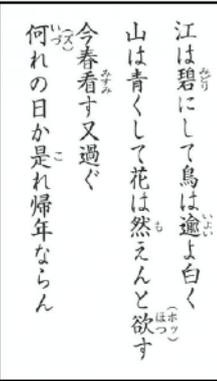 江は碧にして鳥は逾よ白く
山は青くして花は然えんと欲す
今春看す又過ぐ
何れの日か是れ帰年ならん